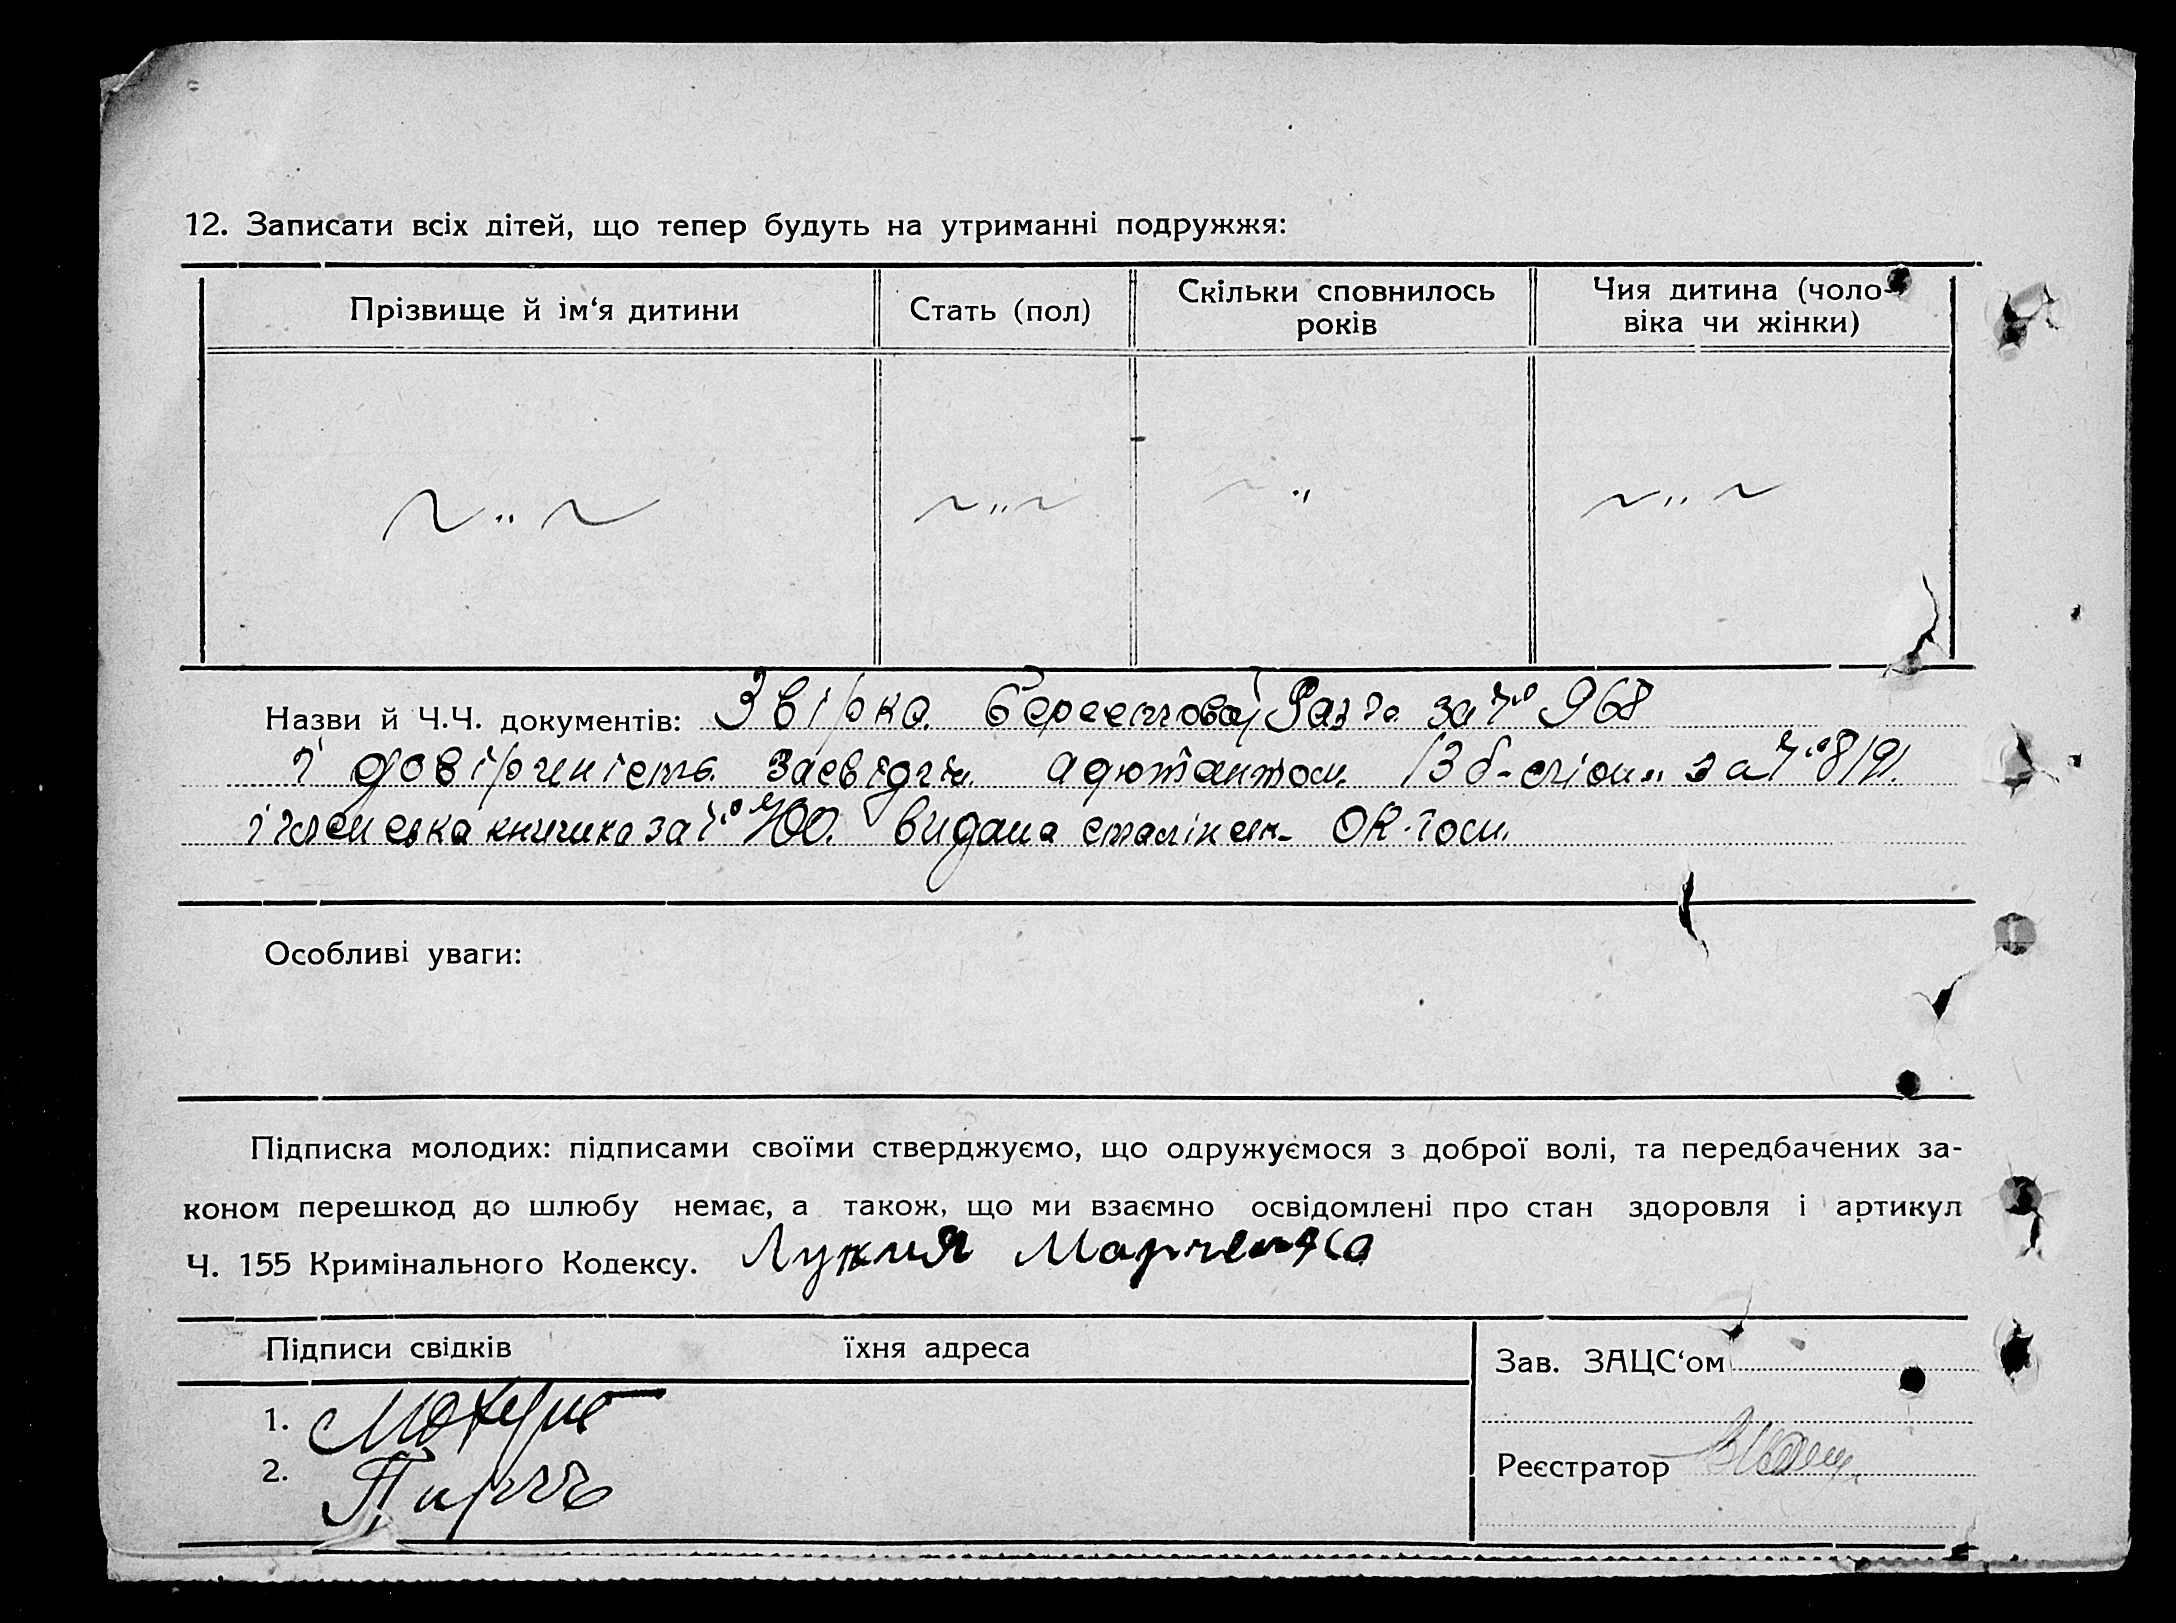 12. Записати всіх дітей, що тепер будуть на утриманні подружжя:
Прізвище й ім‘я дитини
Стать (пол)
Скільки сповнилось
років
Чия дитина (чоло-
віка чи жінки)
Назви й Ч.Ч. документів: Звірка за Ч. 968
і довірчиність адютантом за Ч.
книжка за Ч. 400. видана
Особливі уваги:
Підписка молодих: підписами своїми стверджуємо, що одружуємося з доброї волі, та передбачених за-
коном перешкод до шлюбу немає, а також, що ми взаємно освідомлені про стан здоровля і артикул
Ч. 155 Кримінального Кодексу. Лукия Марченко
Підписи свідків їхня адреса
Зав. ЗАЦС‘ом
1.
2.
Реєстратор